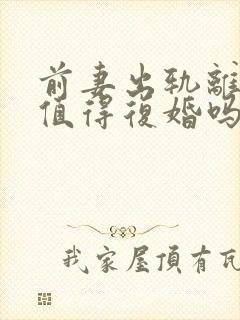 前妻出轨離
值得復婚吗
我家屋頂有瓦